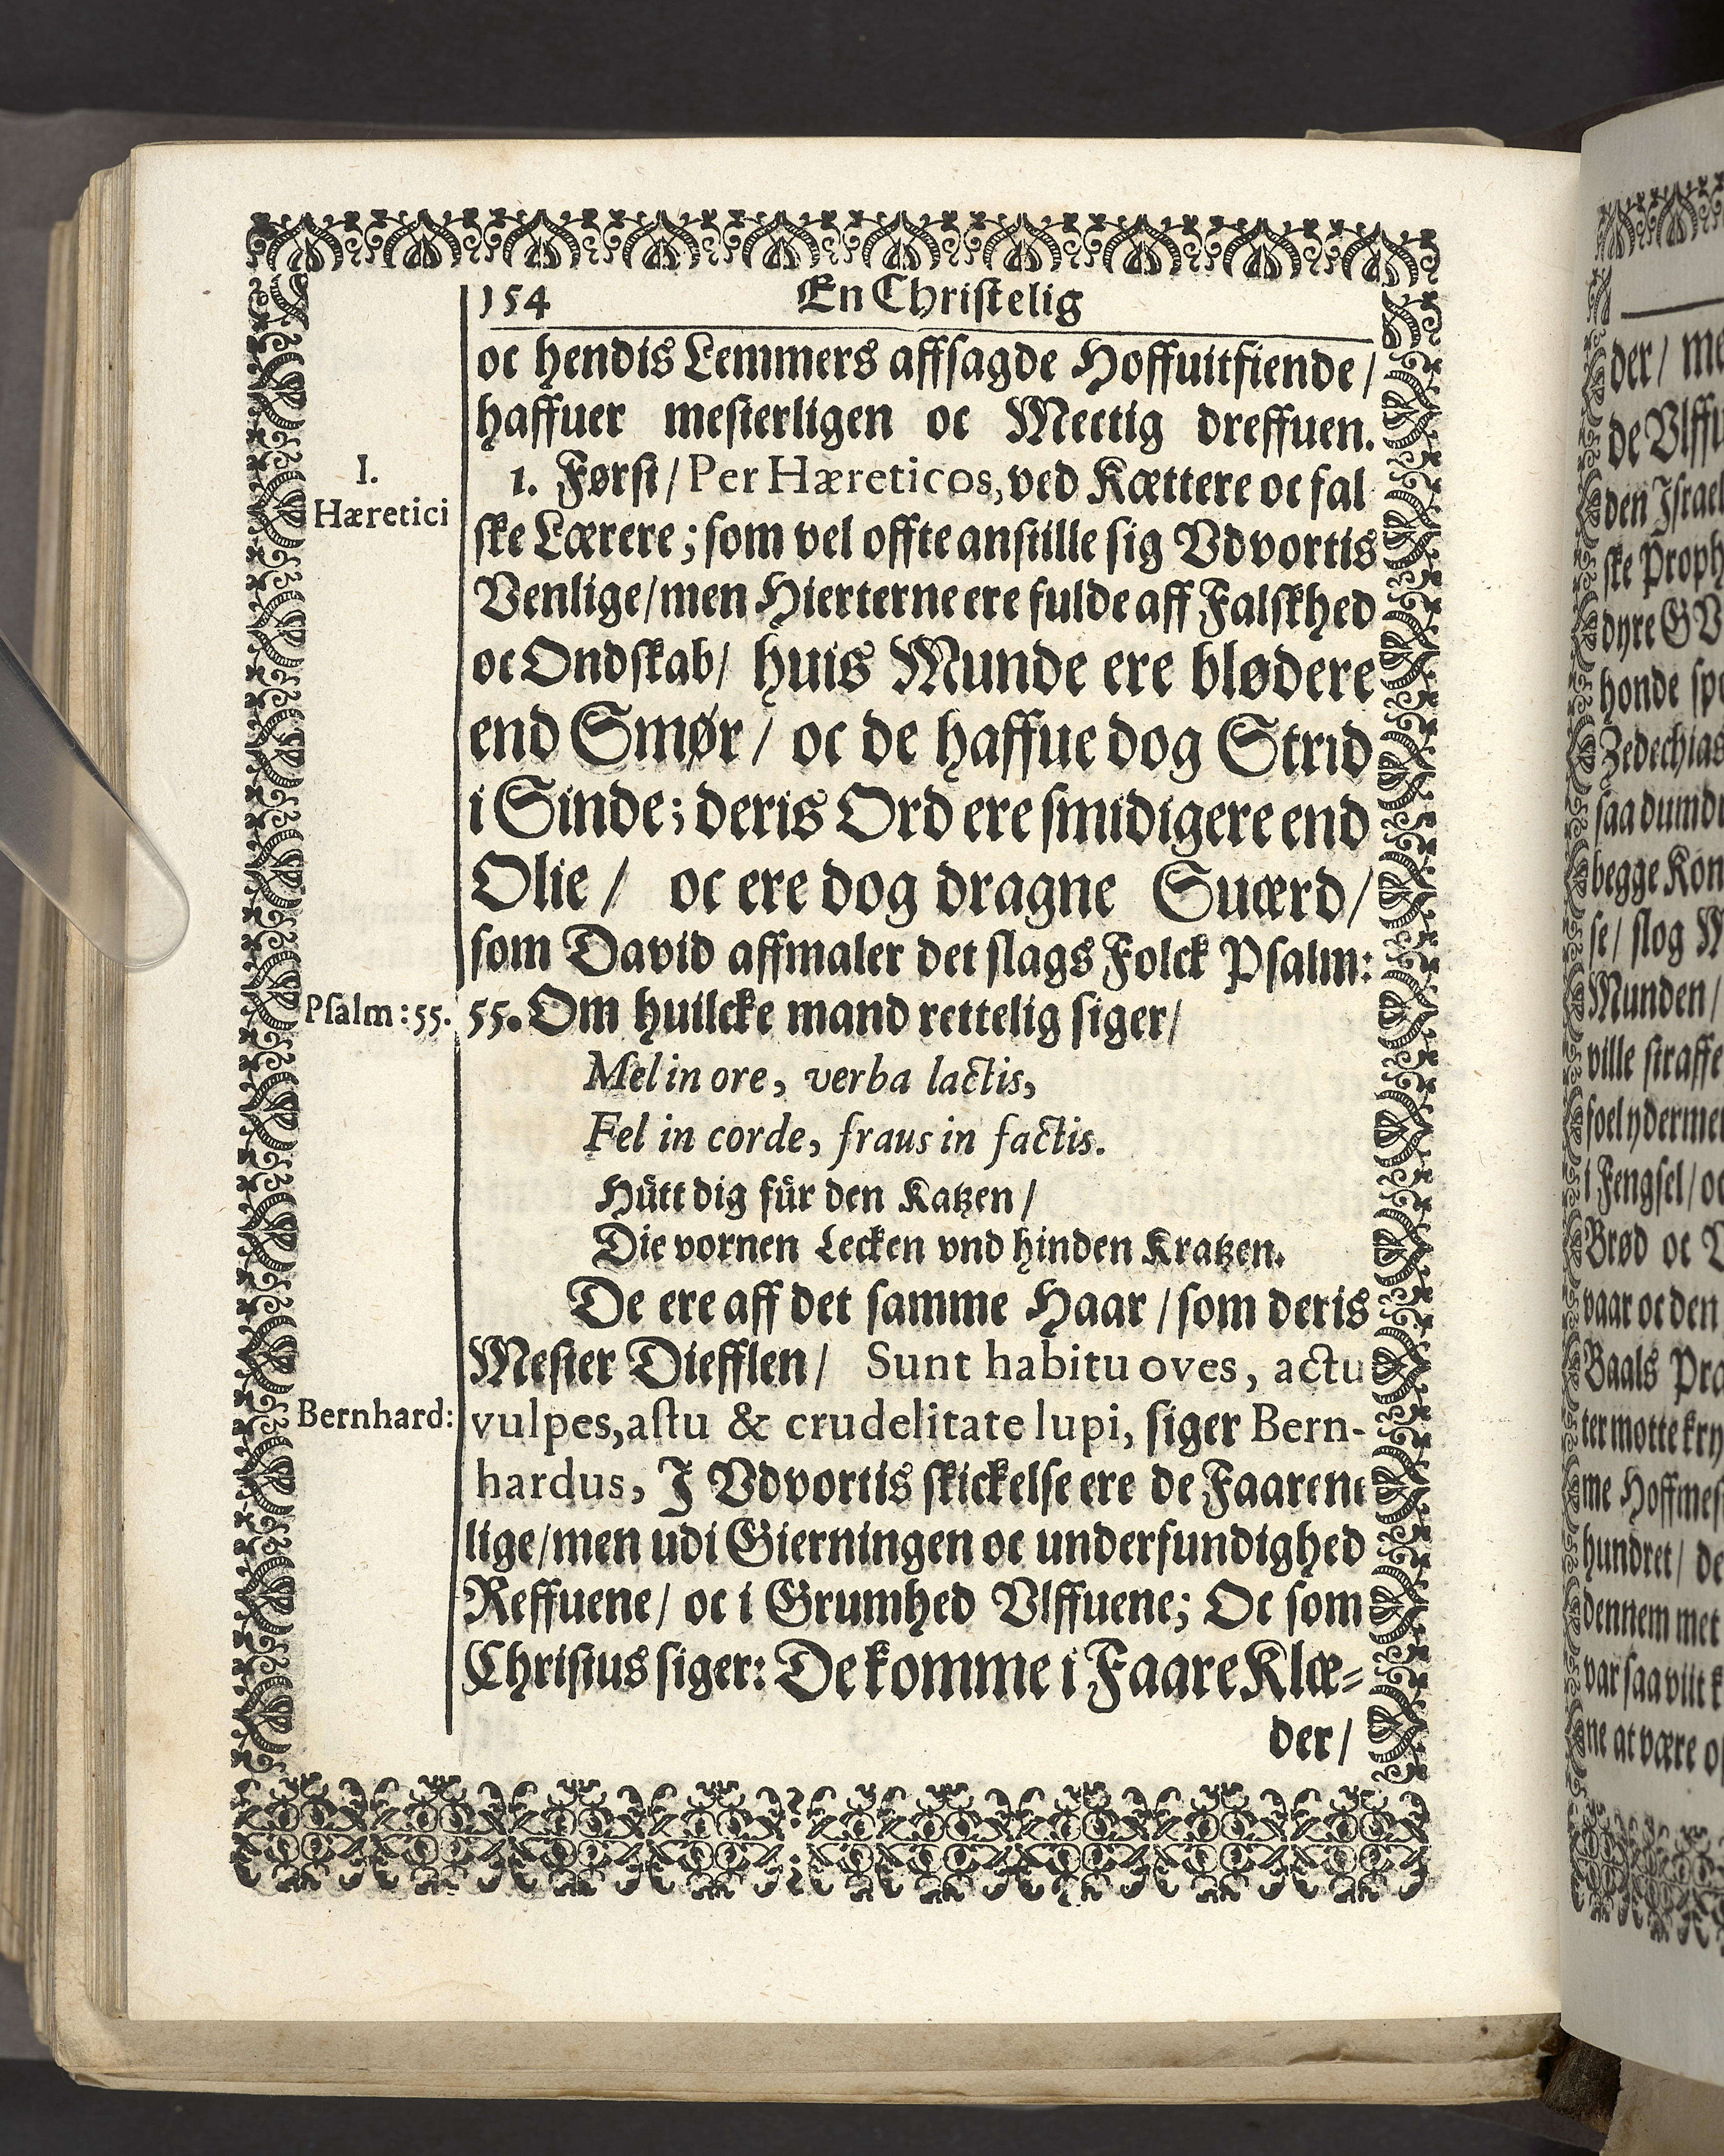 154 En Christelig
oc hendis Lemmers affsagde Hoffuitfiende/
haffuer mesterligen oc Mectig dreffuen.
I.
Hæretici
1. Først/ Per Hæreticos, ved Kættere oc fal
ske Lærere; som vel offte anstille sig Vdvortis
Venlige/ men Hierterne ere fulde aff Falskhed
oc Ondskab/ huis Munde ere blødere
end Smør/ oc de haffue dog Strid
i Sinde; deris Ord ere smidigere end
Olie/ oc ere dog dragne Suærd/
som David affmaler det slags Folck Psalm:
Psalm: 55.
55. Om huilcke mand rettelig siger/
Mel in ore, verba lactis,
Fel in corde, fraus in factis.
Hütt dig für den Katzen/
Die vornen Lecken vnd hinden Kratzen.
De ere aff det samme Haar/ som deris
Mester Diefflen/ Sunt habitu oves, actu
Bernhard:
vulpes, astu & crudelitate lupi, siger Bern-
hardus, I Vdvortis skickelse ere de Faarene
lige/ men udi Gierningen oc underfundighed
Reffuene/ oc i Grumhed Vlffuene; Oc som
Christus siger: De komme i Faare Klæ-
der/
der/
de
den
ske
dyre
honde
Zedechias
saa
begge
se/ slog
Munden/
ville straffe
i Fengsel/
Brød oc
vaar oc den
Baals
hundret/
dennem met
var saa viit
ne at være